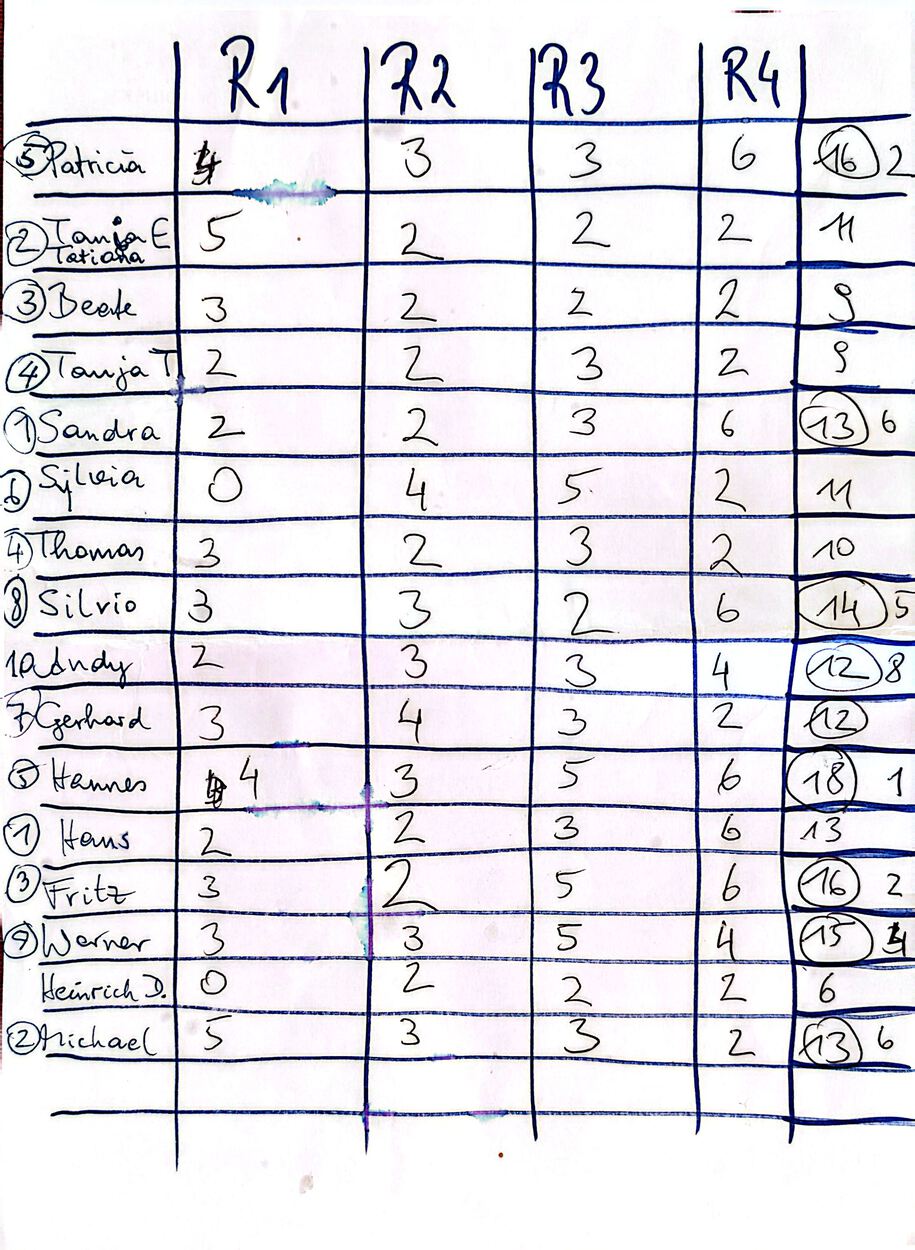 R1 R2 R3 R4
5 Patricia 4 3 3 6 16 2
2 Tanja E Tatiana 5 2 2 2 11
3 Beate 3 2 2 2 9
4 Tanja T 2 2 3 2 9
1 Sandra 2 2 3 6 13 6
6 Sylvia 0 4 5 2 11
4 Thomas 3 2 3 2 10
8 Silvio 3 3 2 6 14 5
10 Andy 2 3 3 4 12 8
7 Gerhard 3 4 3 2 12
5 Hannes 4 3 5 6 18 1
1 Hans 2 2 3 6 13
3 Fritz 3 2 5 6 16 2
9 Werner 3 3 5 4 15 4
Heinrich D. 0 2 2 2 6
2 Michael 5 3 3 2 13 6